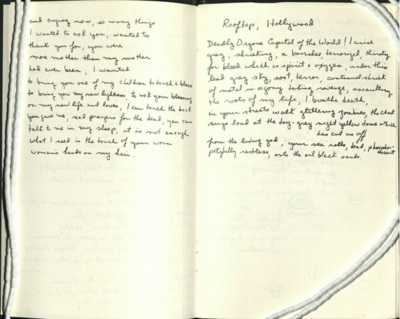 and crying now, so many things
I wanted to ask you, wanted to
thank you for, you were
more mother than my mother
had ever been, I wanted
to bring you one of my children to touch & bless
to bring you my new lightness to ask your blessing
on my new life and loves, I can touch the
you gave me, set prayers for the dead, you can
talk to me in my sleep, it is not enough
what I seek is the touch of your worn
woman's hands on my hair.
Rooftop, Hollywood
Deadly Orgone Capitol of the World! I arise
gray, shrieking, a banshee, thirsty
for blood which is spirit & oxygen, under this
lead gray sky, soot, terror, continued shriek
of metal in agony taking revenge, assaulting
the roots of my life, I breathe death,
in your streets walk glittering zombies, the
sings loud at the day-gray night yellow dawn which
has cut us off
from the living god, your sea rolls, dead, phosphor-
escent
pitifully restless, onto the oil black sands.